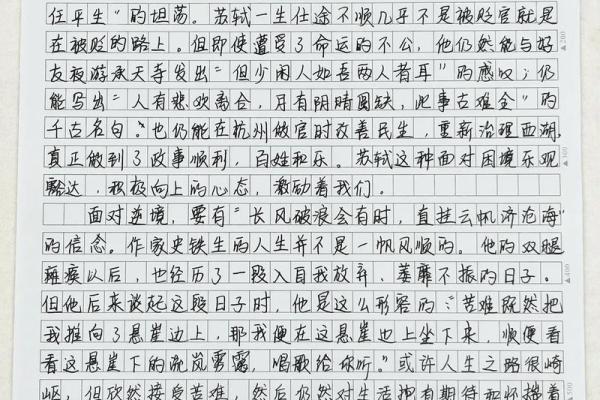 任平生”的坦荡。苏轼一生仕途不顺几乎不是被贬官就是
在被贬的路上。但即使遭受了命运的不公，他仍然能与好
友夜游承天寺发出“但少闲人如吾两人者耳”的感叹；仍
能写出“人有悲欢离合，月有阴晴圆缺，此事古难全”的
千古名句。也仍能在杭州做官时改善民生，重新治理西湖，
真正做到了政事顺利，百姓和乐。苏轼这种面对困境乐观
豁达，积极向上的心态，激励着我们。
面对逆境，要有“长风破浪会有时，直挂云帆济沧海”
的信念。作家史铁生的人生并不是一帆风顺的。他的双腿
瘫痪以后，也经历了一段入自我放弃、萎靡不振的日子。
但他后来谈起这段日子时，他是这么形容的：“苦难既然把
我推向了悬崖边上，那我便在这悬崖也上坐下来，顺便看
看这悬崖下的流岚雾霭，唱歌给你听。”或许人生之路很崎
岖，但欣然接受苦难，然后仍然对生活抱有期待和怀揣着
200
300
400
500